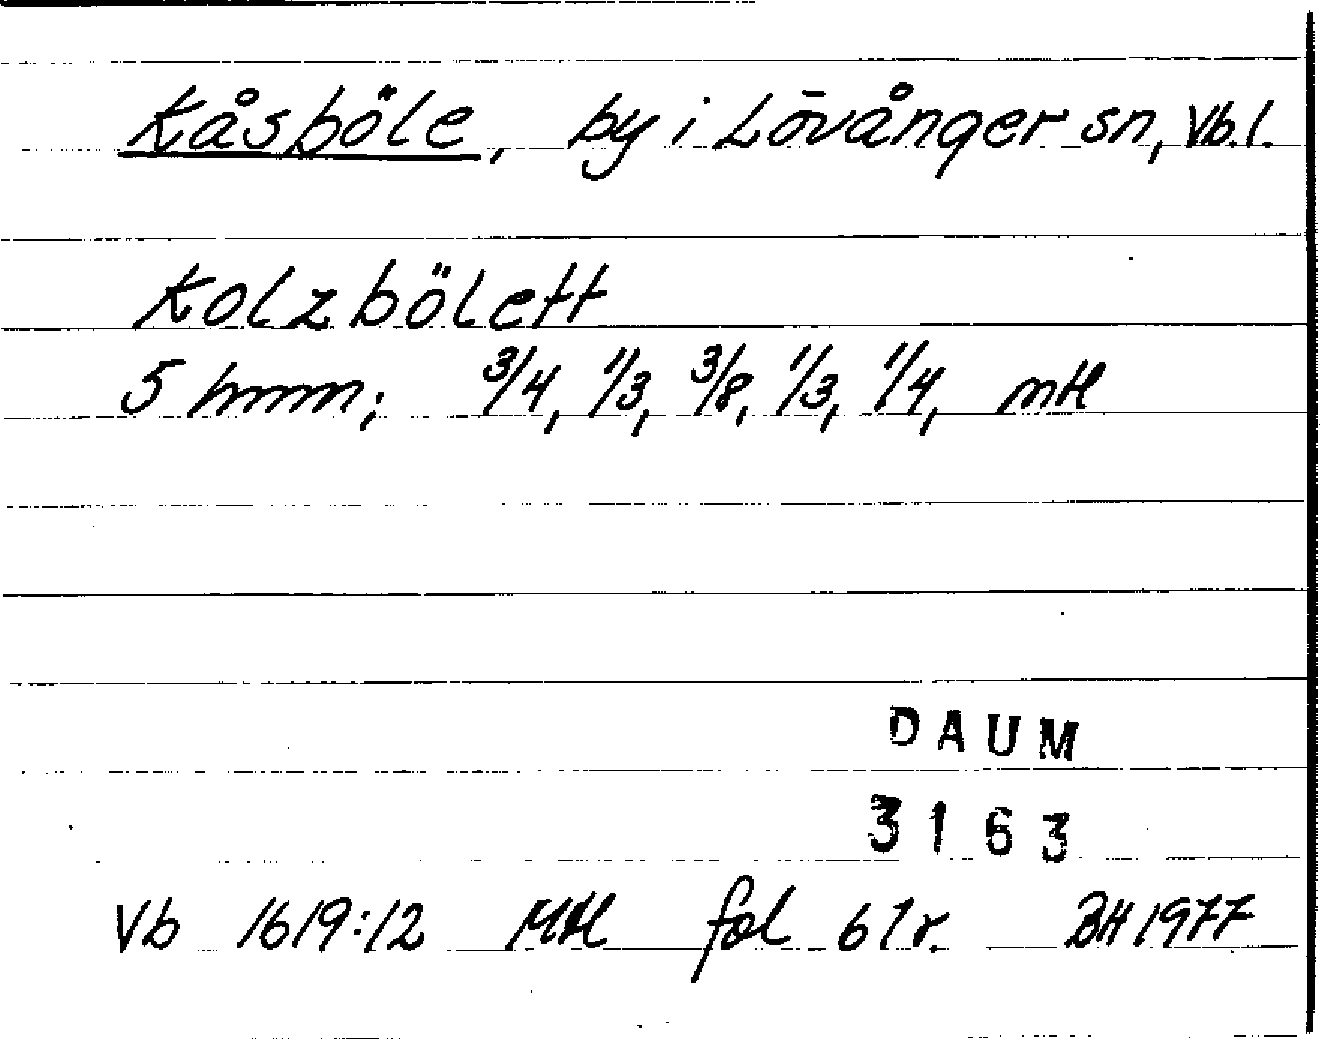 Kåsböle, by i Lövånger sn, Vb.l.
Kolzbölett
5 hmm; 3/4, 1/3, 3/8, 1/3, 1/4, mtl
DAUM
3163
Vb 1619:12 Mtl fol 61r. BH 1977